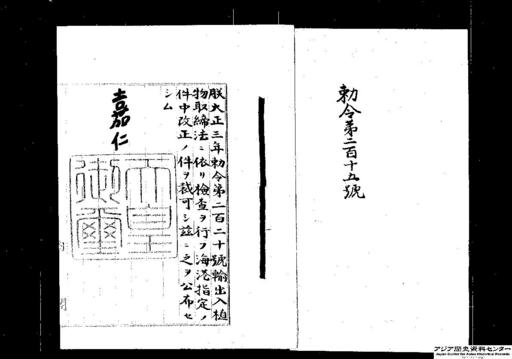 勅令第二百十五號
朕大正三年勅令第二百二十號輸出入植
物取締法ニ依リ檢査ヲ行フ海港指定ノ
件中改正ノ件ヲ裁可シ茲ニ之ヲ公布セ
シム
嘉仁
天皇
御璽
アジア歴史資料センター
Japan Center for Asian Historical Records